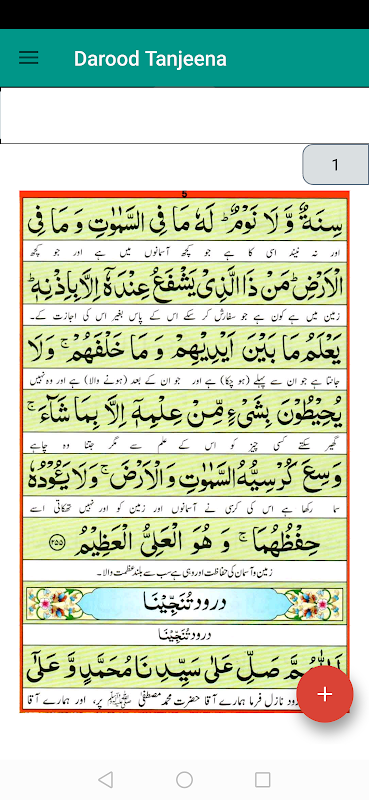 Darood Tanjeena
1
5
سِنَةٌ وَّ لَا نَوْمٌ ؕ لَهٗ مَا فِی السَّمٰوٰتِ وَ مَا فِی
اور نہ نیند اسی کا ہے جو کچھ آسمانوں میں ہے اور جو کچھ
الْاَرْضِ ؕ مَنْ ذَا الَّذِیْ یَشْفَعُ عِنْدَهٗۤ اِلَّا بِاِذْنِهٖ ؕ
زمین میں ہے کون ہے جو سفارش کر سکے اس کے پاس بغیر اس کی اجازت کے۔
یَعْلَمُ مَا بَیْنَ اَیْدِیْهِمْ وَ مَا خَلْفَهُمْ ۚ وَلَا
جانتا ہے جو ان سے پہلے (ہو چکا) ہے اور جو ان کے بعد (ہونے والا) ہے اور وہ نہیں
یُحِیْطُوْنَ بِشَیْءٍ مِّنْ عِلْمِهٖۤ اِلَّا بِمَا شَآءَ ۚ
گھیر سکتے کسی چیز کو اس کے علم سے مگر جتنا وہ چاہے
وَسِعَ كُرْسِیُّهُ السَّمٰوٰتِ وَالْاَرْضَ ۚ وَلَا یَـُٔوْدُهٗ
سما رکھا ہے اس کی کرسی نے آسمانوں اور زمین کو اور نہیں تھکاتی اسے
حِفْظُهُمَا ۚ وَ هُوَ الْعَلِیُّ الْعَظِیْمُ ﴿۲۵۵﴾
زمین و آسمان کی حفاظت اور وہی ہے سب سے بلند عظمت والا۔
درود تُنَجِّیْنَا
درود تُنَجِّیْنَا
اَللّٰهُمَّ صَلِّ عَلٰی سَیِّدِنَا مُحَمَّدٍ وَّ عَلٰٓی
درود نازل فرما ہمارے آقا حضرت محمد مصطفیٰ ﷺ پر، اور ہمارے آقا
+